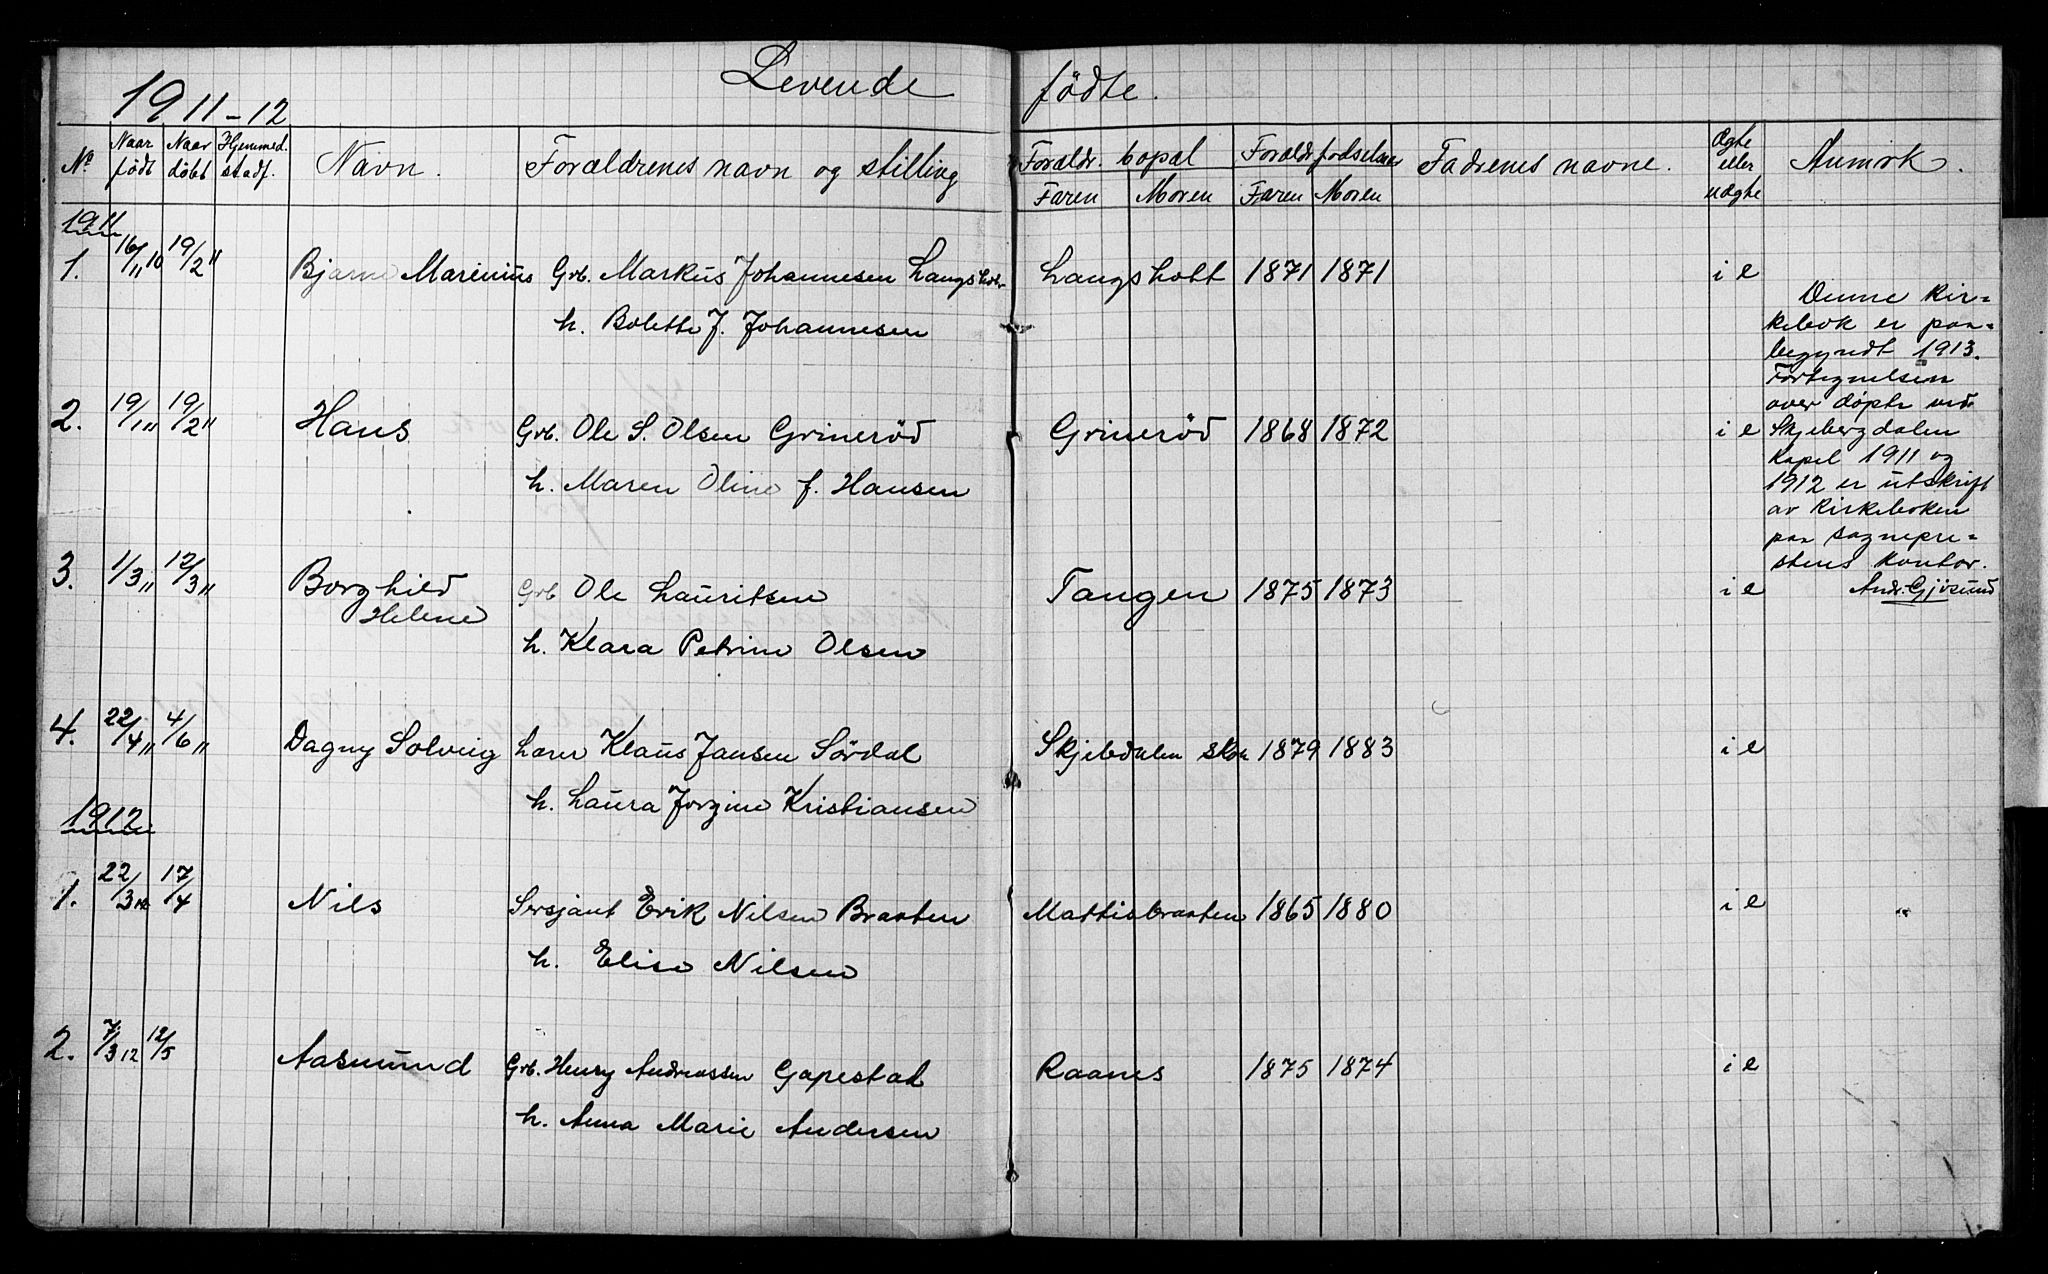 Levende fødte.
1911-12
No Naar født Naar døbt Hjemmed. stadf. Navn. Forældrenes navn og stilling Forældr. bopæl Forældr. fødselsaar Fadrenes navne. Ægte eller uægte Anmerk.
Faren Moren Faren Moren
1911
1. 16/11 10 19/2 " Bjarne Marinius Grb. Markus Johannesen Langsholt Langsholt 1871 1871 i e
h. Bolette J. Johannesen
2. 19/1 " 19/2 " Hans Grb. Ole S. Olsen Grinerød Grinerød 1868 1872 i e
h. Maren Oline f. Hansen
3. 1/3 " 12/3 " Borghild Helene Grb Ole Lauritsen Tangen 1875 1873 i e
h. Klara Petrine Olsen
4. 22/4 " 4/6 " Dagny Solveig Lærer Klaus Jansen Sørdal Skjebdalen skole 1879 1883 i e
h. Laura Jorgine Kristiansen
1912
1. 22/3 12 17/4 Nils Sersjant Erik Nilsen Braaten Mattisbraaten 1865 1880 i e "
h. Elise Nilsen
2. 7/3 12 12/5 Aasmund Grb. Henry Andreassen Gapestad Raanes 1875 1874 i e
h. Anna Marie Andersen
Denne kir-
kebok er paa-
begyndt 1913.
Fortegnelsen
over døpte ved
Skjebergdalen
Kapel 1911 og
1912 er utskrift
av kirkeboken
paa sognepre-
stens kontor.
Andr. Gjøsund